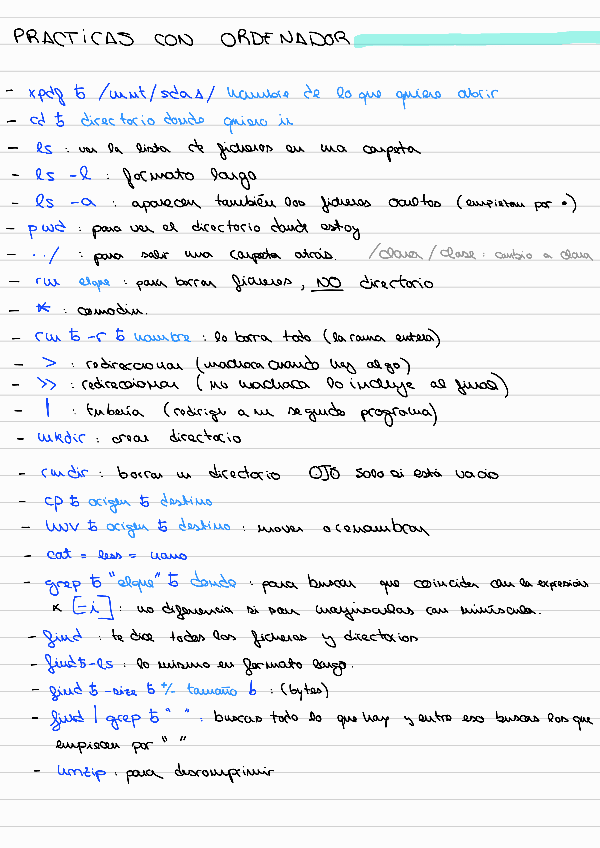 PRACTICAS CON ORDENADOR
- xpdf ␢ /mnt/sda1/ nombre de lo que quiero abrir
- cd ␢ directorio donde quiero ir
- ls : ver la lista de ficheros en una carpeta
- ls -l : formato largo
- ls -a : aparecen también los ficheros ocultos (empiezan por •)
- pwd : para ver el directorio donde estoy
- ../ : para salir una carpeta atrás. /clara/clase : cambio a clara
- rm elque : para borrar ficheros, NO directorio
- * : comodín.
- rm ␢ -r ␢ nombre : lo borra todo (la rama entera)
- > : redireccionar (machaca cuando hay algo)
- >> : redireccionar (no machaca lo incluye al final)
- | : tubería (redirige a un segundo programa)
- mkdir : crear directorio
- rmdir : borrar un directorio OJO solo si está vacío
- cp ␢ origen ␢ destino
- mv ␢ origen ␢ destino : mover o renombrar
- cat = less = nano
- grep ␢ "elque" ␢ donde : para buscar que coinciden con la expresión
* [-i] : no diferencia si son mayúsculas con minúscula.
- find : te dice todos los ficheros y directorios
- find ␢ -ls : lo mismo en formato largo.
- find ␢ -size ␢ +/- tamaño b : (bytes)
- find | grep ␢ " " : buscas todo lo que hay y entre eso buscas los que
empiecen por " "
- unzip : para descomprimir